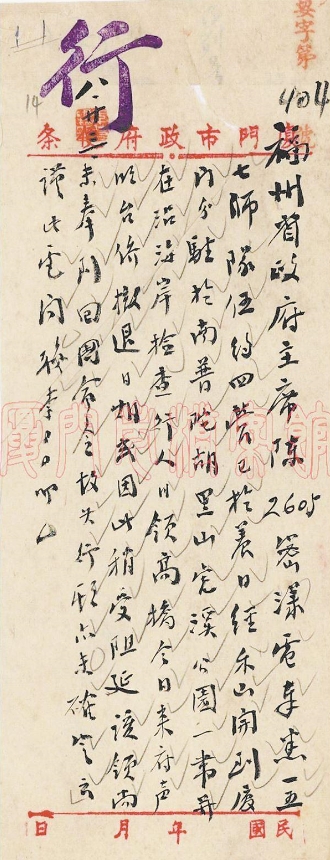 要字第
404
行
八.廿三
14
廈門市政府條
福州省政府主席陳 2605 密漾電奉悉一五
七師隊伍約四營已於養日經禾山開到廈
門分駐於南普陀胡里山虎溪公園一帶并
在沿海岸檢查行人日領高橋今日來府声
明台僑撤退日期或因此稍受阻延該領尚
未奉到回國命令故其行期亦未確定云
謹此電聞職李○○叩
民國 年 月 日
廈門市檔案館